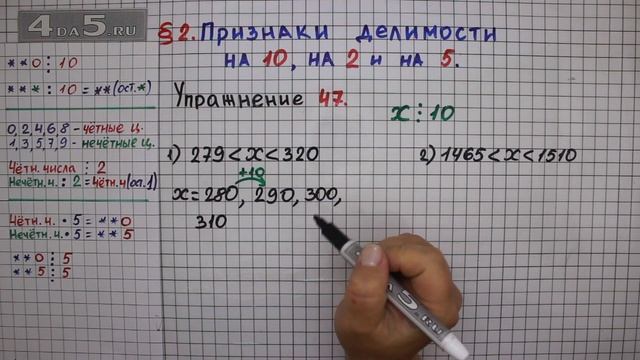 4DA5.RU
§2. Признаки делимости
на 10, на 2 и на 5.
Упражнение 47.
x ⋮ 10
1) 279 < x < 320
+10
x = 280, 290, 300,
310
2) 1465 < x < 1510
**0 ⋮ 10
*** : 10 = ** (ост.*)
0, 2, 4, 6, 8 - чётные ц.
1, 3, 5, 7, 9 - нечётные ц.
Чётн. числа ⋮ 2
Нечётн.ч. : 2 = Чётн.ч (ост.1)
Чётн. ч. • 5 = **0
Нечётн. ч. • 5 = **5
**0 ⋮ 5
**5 ⋮ 5